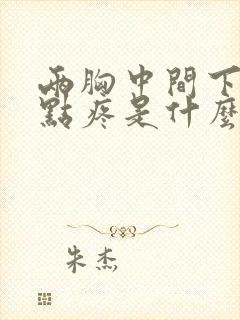 兩胸中間下
點疼是什麼
朱杰